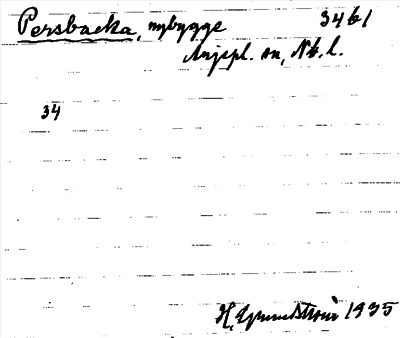 Persbacka, nybygge 34b1
Arjepl. sn, Nb. l.
34
H. Grundström 1935